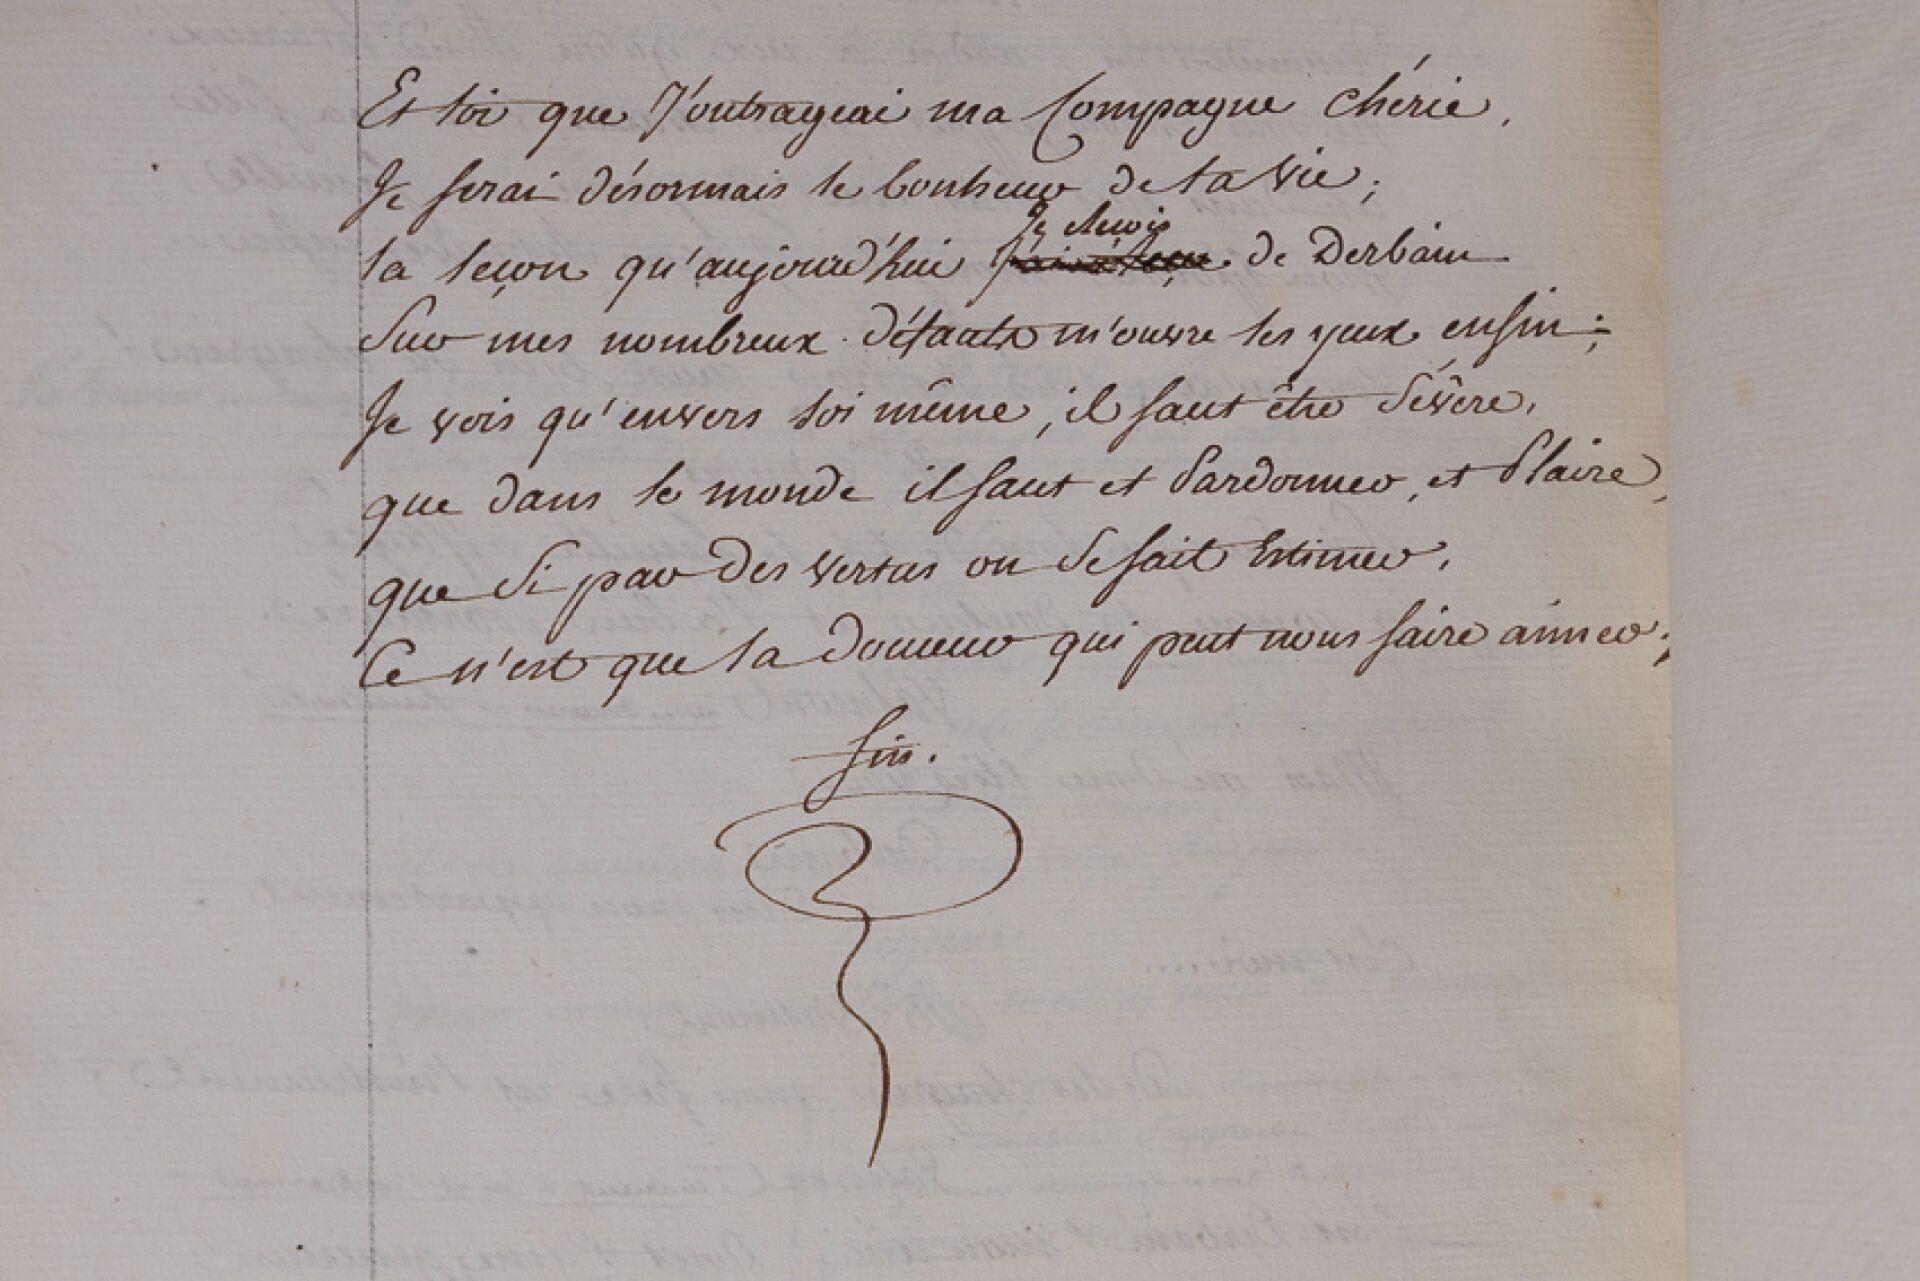 Et toi que j'outrageai ma Compagne chérie,
Je serai désormais le bonheur de ta vie;
Je reçois
la leçon qu'aujourd'hui de Derbain
Sur mes nombreux défauts m'ouvre les yeux enfin;
Je vois qu'envers soi même, il faut être Sévère,
que dans le monde il faut et Pardonner, et Plaire,
que Si par des vertus on Se fait Estimer,
Ce n'est que la douceur qui peut nous faire aimer.
fin.